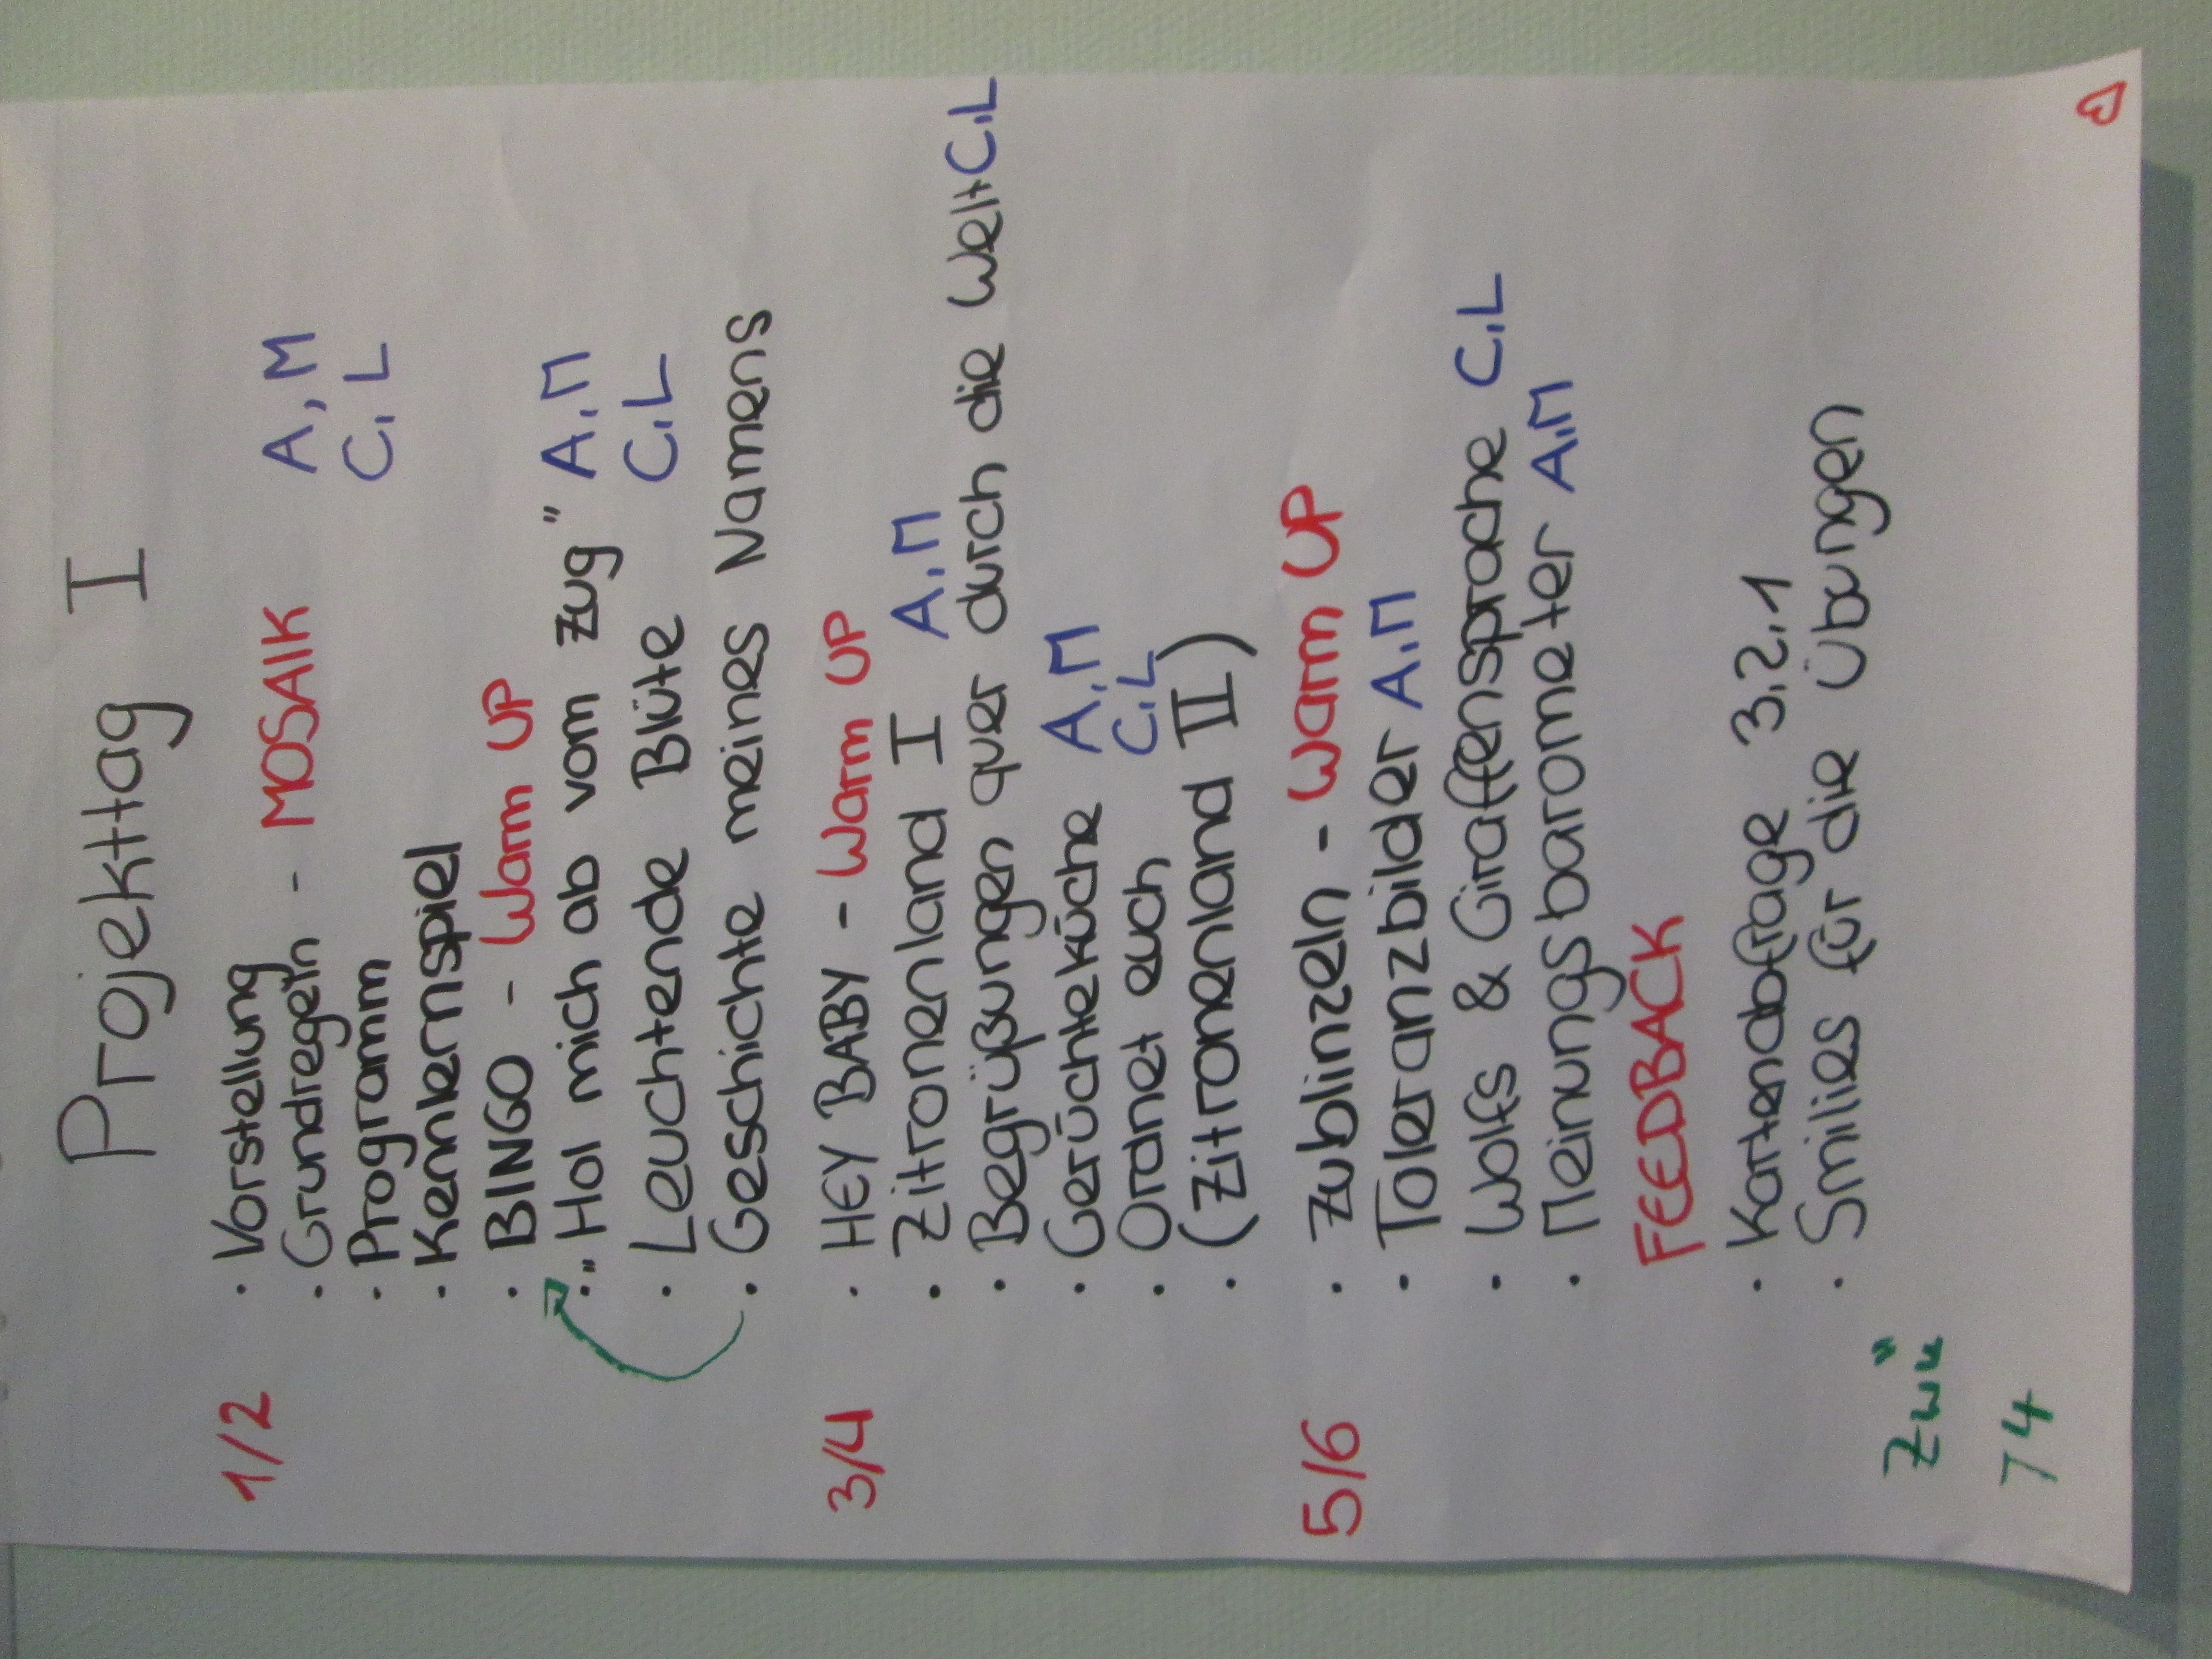 Projekttag I
1/2 · Vorstellung
· Grundregeln - MOSAIK A, M
· Programm C, L
· Kennlernspiel
· BINGO - Warm UP
· "Hol mich ab vom Zug" A, M
· Leuchtende Blüte C, L
· Geschichte meines Namens
3/4 · HEY BABY - Warm UP
· Zitronenland I A, M
· Begrüßungen quer durch die Welt C, L
· Gerüchteküche A, M
· Ordnet euch C, L
· (Zitronenland II)
5/6 · Zublinzeln - Warm UP
· Toleranzbilder A, M
· Wolfs & Giraffensprache C, L
· Meinungsbarometer A, M
FEEDBACK
· Kartenabfrage 3,2,1
· Smilies für die Übungen
74